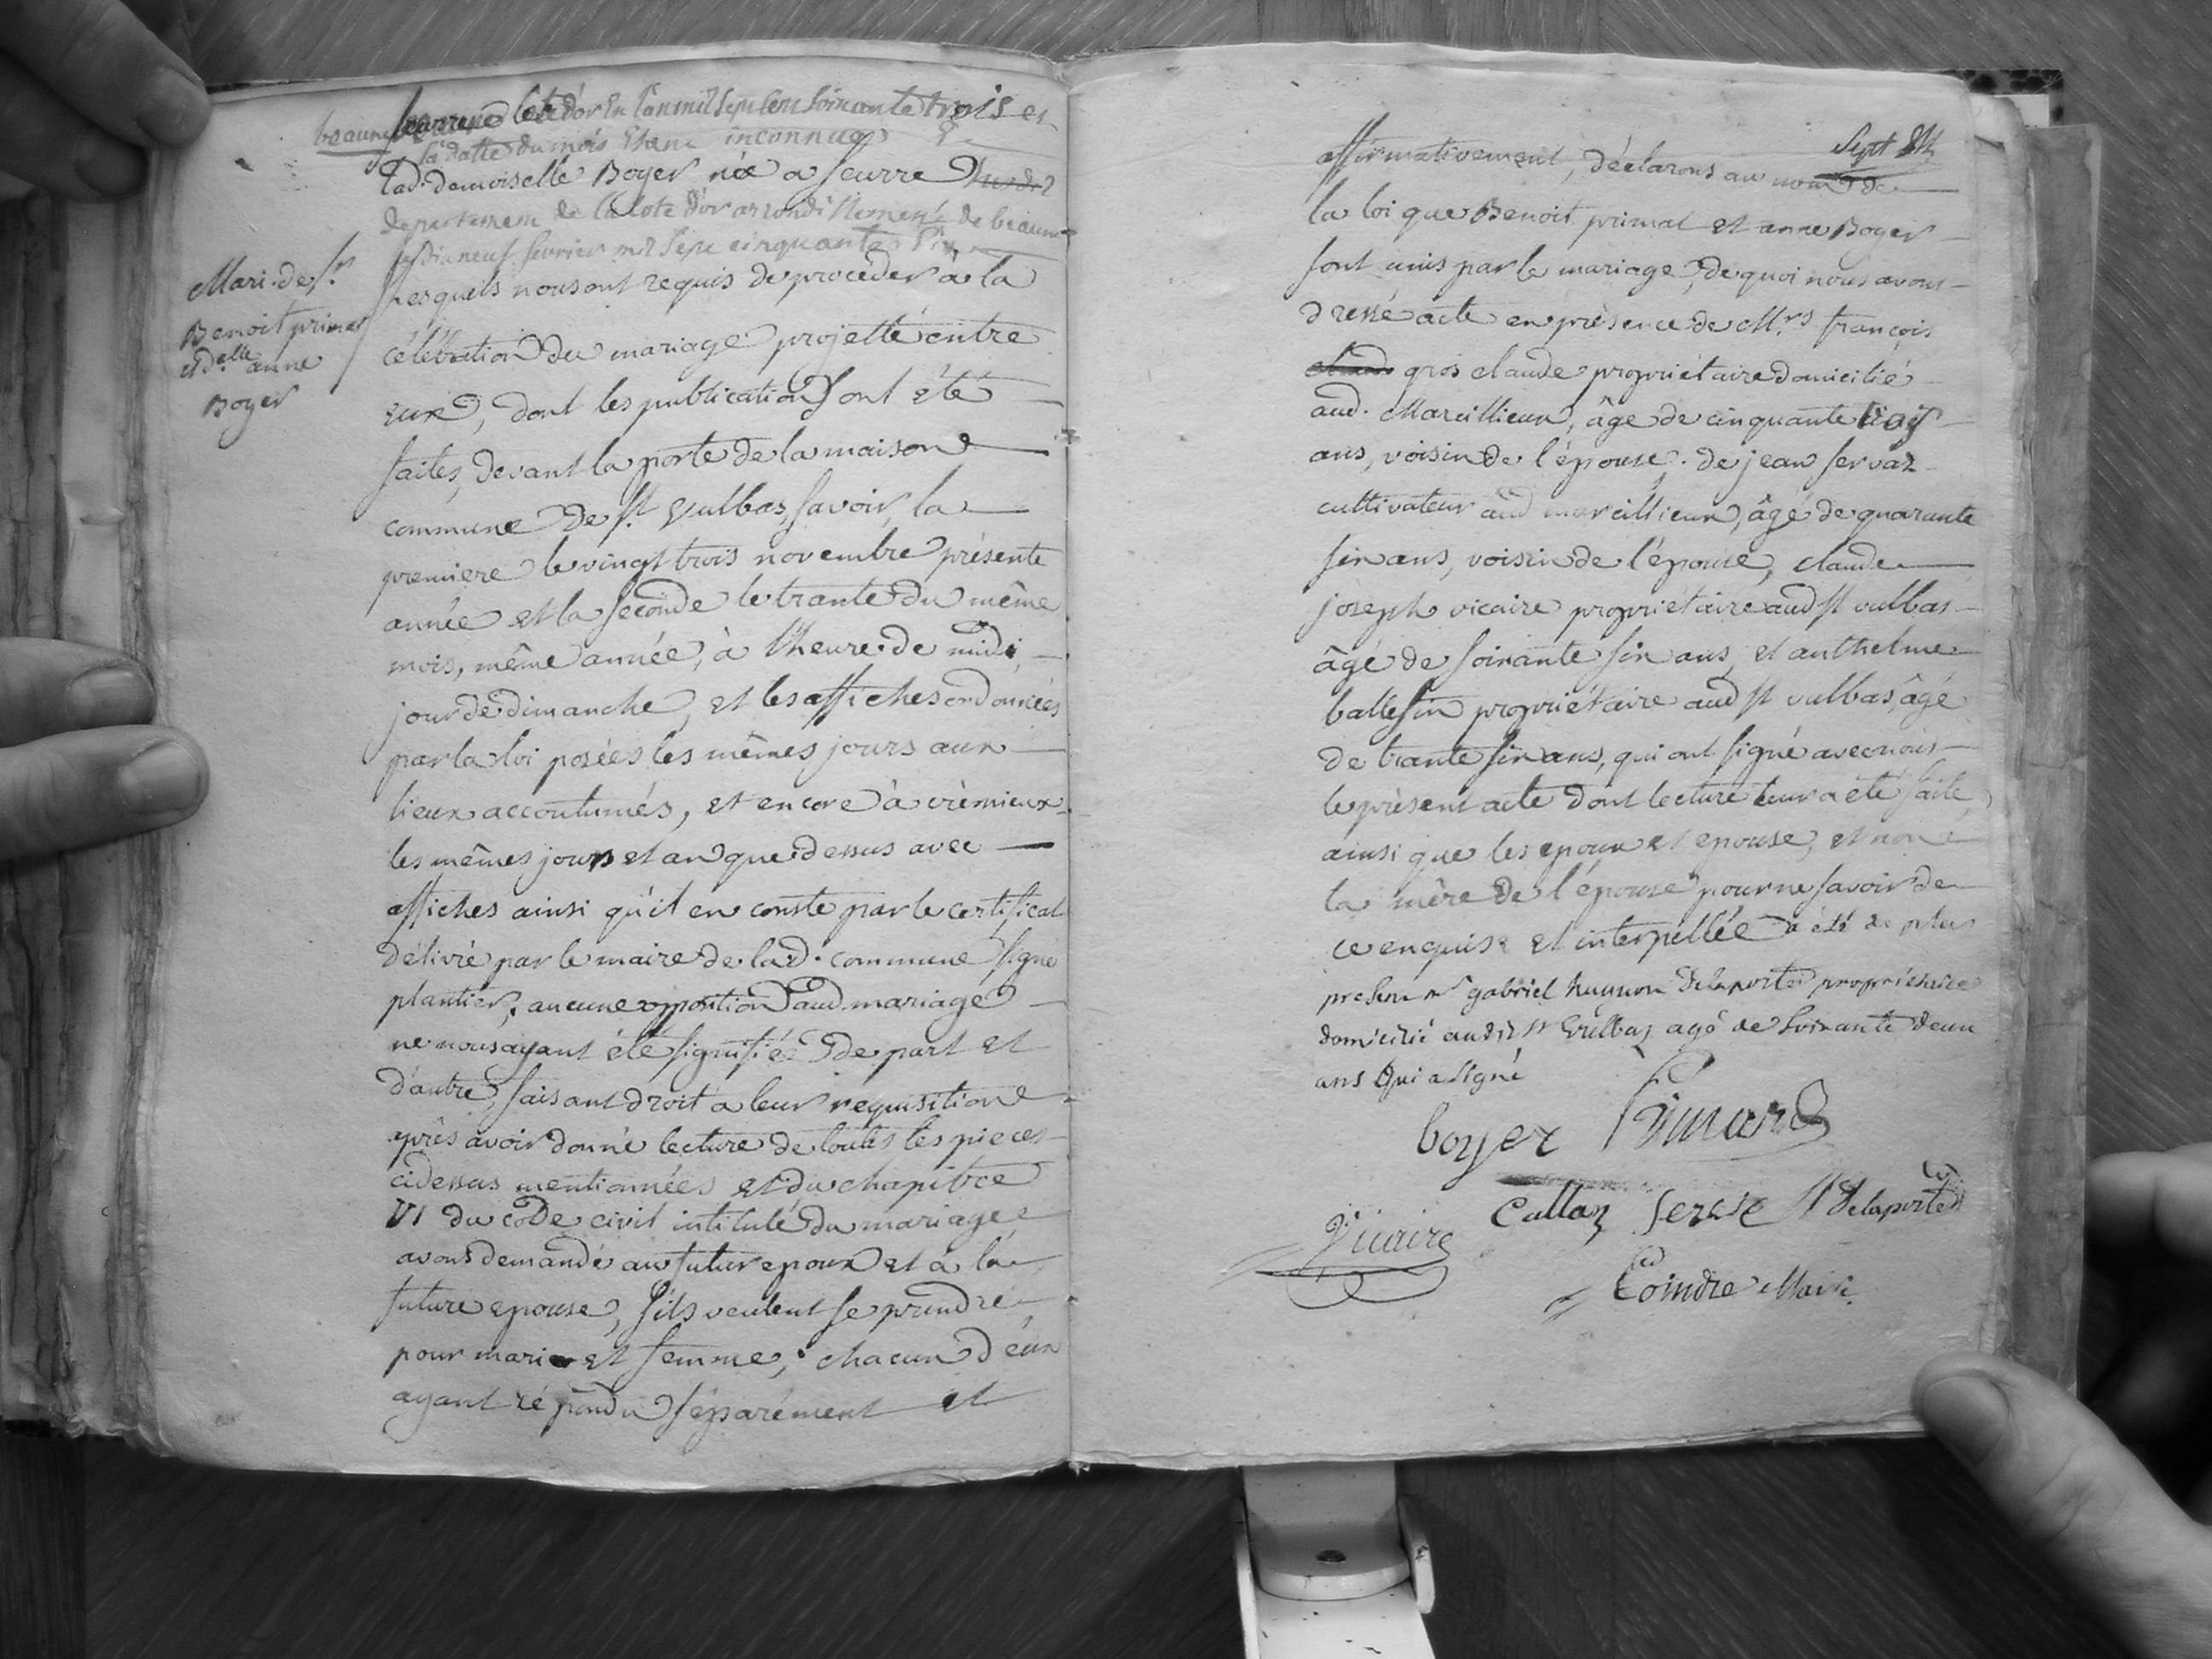 beaune Cote d'or En l'an mil sept cent soixante trois et
la datte du mois Etant inconnue
lad. demoiselle Boyer née a seurre
departement de la Cote d'or arrondissement de beaune
le dix neuf fevrier mil sept cinquante six
Mari. de sr.
Benoit primat
et delle anne
Boyer
Lesquels nous ont requis de procéder à la
célébration du mariage projetté entre
eux, dont les publications ont été
faites, devant la porte de la maison
commune de st. Vulbas, savoir, la
premiere le vingt trois novembre présente
année et la seconde le trante du même
mois, même année, à l'heure de midi,
jour de dimanche, et les affiches ordonnées
par la loi posées les mêmes jours aux
lieux accoutumés, et encore à crémieux
les mêmes jours et an que dessus avec
affiches ainsi qu'il en conste par le certificat
délivré par le maire de lad. commune signé
plantier, aucune opposition aud. mariage
ne nous ayant été signifiée de part et
d'autre, faisant droit a leur requisition
après avoir donné lecture de toutes les pieces
cidessus mentionnées et du chapitre
VI du code civil intitulé du mariage
avons demandé au futur epoux et à la
future epouse, s'ils veulent se prendre
pour mari et femme, chacun d'eux
ayant répondu séparément et
Sept
affirmativement, déclarons au nom de
la loi que Benoit primat et anne Boyer
sont unis par le mariage, de quoi nous avons
dressé acte en présence de Mrs françois
gros claude propriétaire domicilié
aud. Marcillieux, âge de cinquante trois
ans, voisin de l'épouse, de jean servaz
cultivateur aud marcillieux, âgé de quarante
six ans, voisin de l'épouse, claude
joseph vicaire propriétaire aud st vulbas
âgé de soixante six ans, et anthelme
ballefin propriétaire aud st vulbas, âgé
de trante six ans, qui ont signé avec nous
le présent acte dont lecture leur a été faite,
ainsi que les epoux et epouse, et non
la mère de l'épouse pour ne savoir de
ce enquise et interpellée a été de plus
present mr gabriel hugon delaporte propriétaire
domicilié audit st Vulbas agé de soixante deux
ans qui a signé
boyer Primard
Vicaire Callaz servse delaporte
Coindre Maire